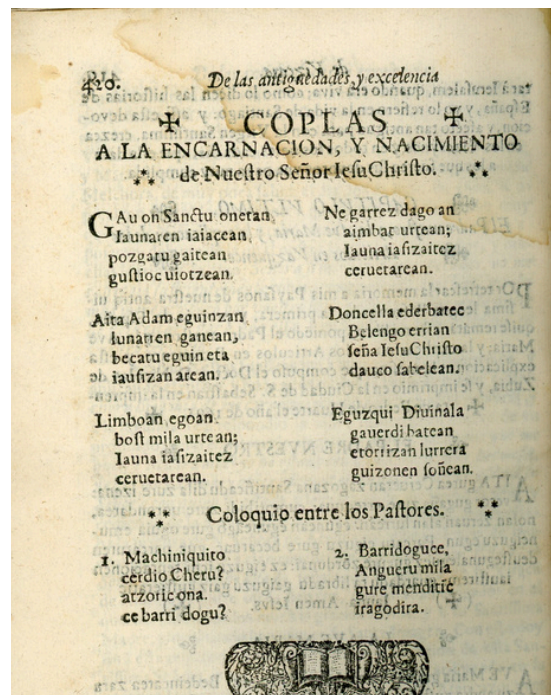 420. De las antiguedades, y excelencia
COPLAS
A LA ENCARNACION, Y NACIMIENTO
de Nuestro Señor IesuChristo.
GAu on Sanctu onetan
Iaunaren iaiacean
pozgatu gaitean
gustioc uiotzean.
Aita Adam eguinzan
lunatien ganean,
becatu eguin eta
iausizan arean.
Limboan egoan
bost mila urtean;
Iauna iasizaitez
ceruetarean.
Ne garrez dago an
aimbat urtean;
Iauna iasizaitez
ceruetarean.
Doncella ederbatec
Belengo errian
seña IesuChristo
dauco sabelean.
Eguzqui Diuinala
gauerdi batean
etorrizan lurrera
guizonen soñean.
Coloquio entre los Pastores.
1. Machiniquito
cerdio Cheru?
atzoric ona.
ce barri dogu?
2. Barridoguce,
Angueru mila
gure menditic
iragodira.